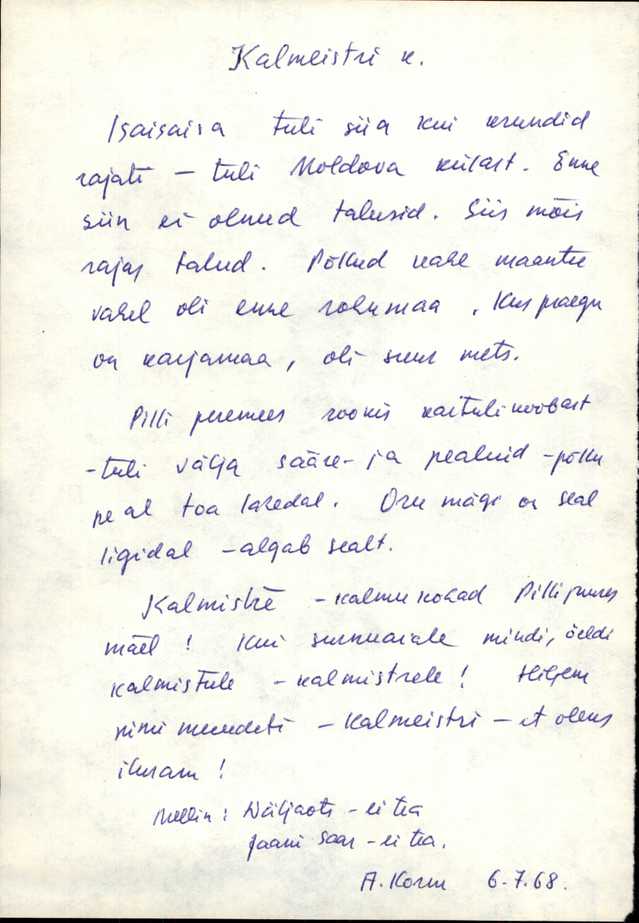 Kalmeistri k.
Isaisaisa tuli siia kui krundid
rajati – tuli Moldova külast. Enne
siin ei olnud talusid. Siis mõis
rajas talud. Põllud kahe maantee
vahel oli enne rohumaa, kus praegu
on karjamaa, oli suur mets.
Pilli peremees kartulikoobast
– tuli välja sääre- ja pealuid – põllu
peal toa lähedal. Oru mägi on seal
ligidal – algab sealt.
Kalmistrē – kalmukohad Pillipuus
mäel! Kui surnuaiale mindi, öeldi
kalmistule – kalmistrele! Hiljem
nimi muudeti – Kalmeistri – et oleks
ilusam!
Mellin: Näljaots – ei tea
Jaani Saar – ei tea.
A. Korm 6.7.68.